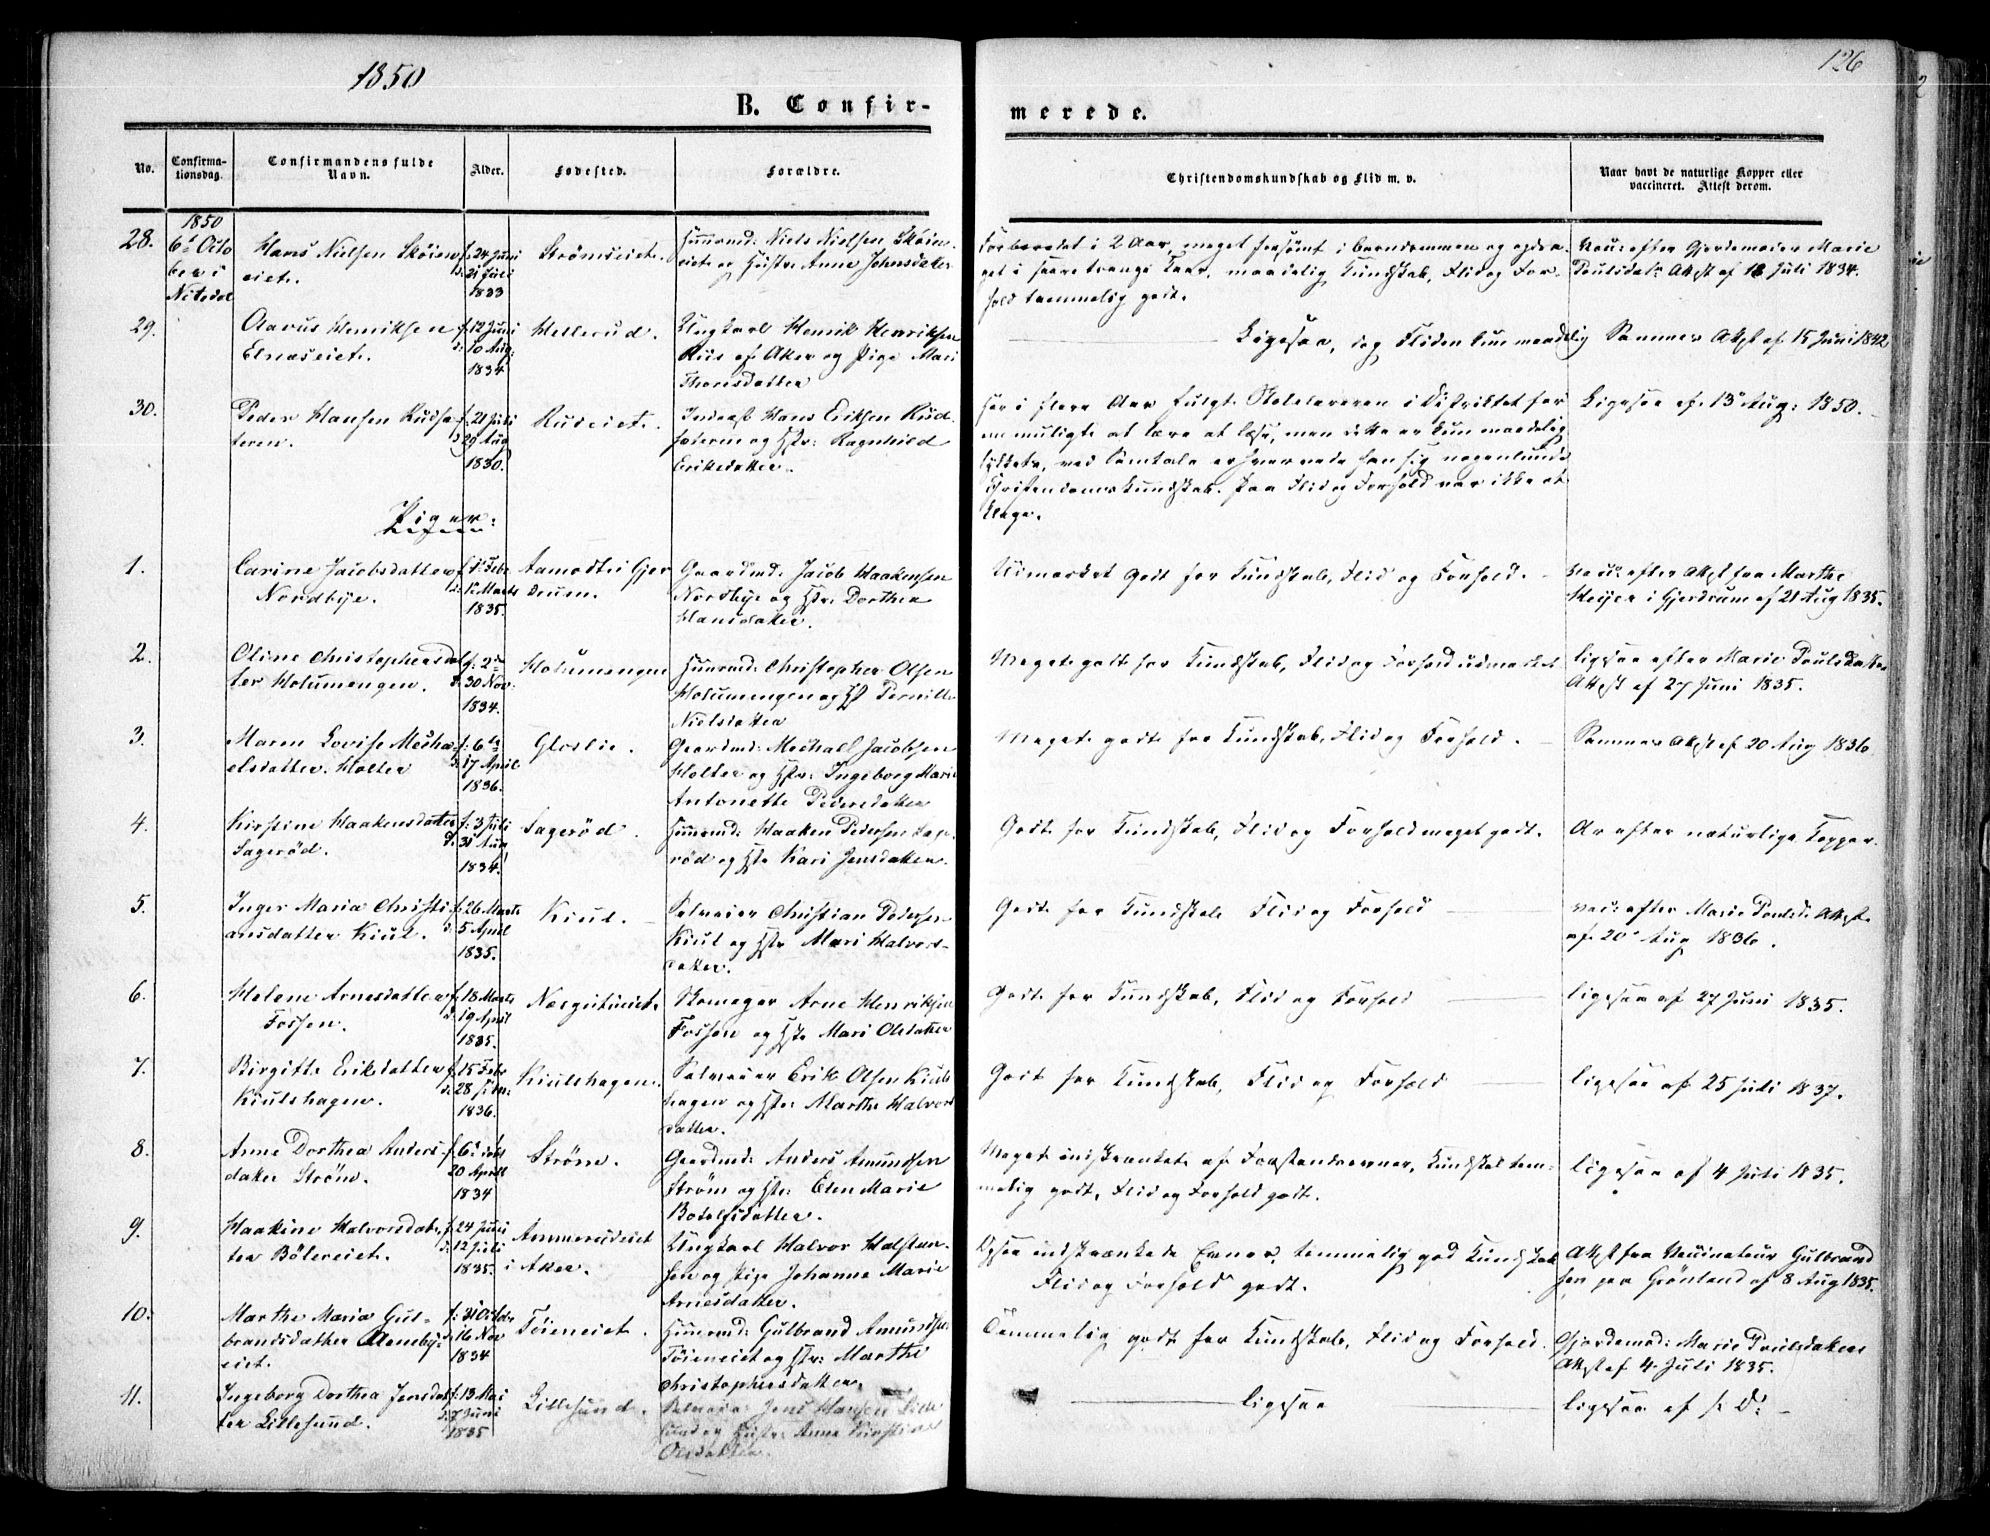 1850
126
B. Confir-
merede.
No.
Confirma-
tionsdag.
Confirmandens fulde
Navn.
Alder.
Fødested.
Forældre.
Christendomskundskab og Flid m. v.
Naar havt de naturlige Kopper eller
vaccineret. Attest derom.
28.
1850
6te Octo
ber i
Nitedal
Hans Nielsen Skøien
eiet.
f. 24 Juni
d. 21 Juli
1833
Strømseiet.
Huusmd: Niels Nielsen Skøien
eiet og Hustr: Anne Johnsdatter
Forberedet i 2 Aar, meget forsømt i barndommen og opdra
get i saare trange Kaar, maadelig Kundskab, Flid og For-
hold temmelig godt.
Vac: efter Gjordemoder Marie
Poulsdatr Attest af 18 Juli 1834.
29.
Aavus Henriksen
Elnæseiet.
f. 12 Juni
d: 10 Aug:
1834
Hellerud.
Ungkarl Henrik Henriksen
Riis af Aker og Pige Mari
Thorsdatter
Ligesaa, dog Fliden kun maadelig
Sammes Attest af 15 Juni 1842
30.
Peder Hansen Rudsø
teren.
f. 21 Juli
d. 29 Aug
1830.
Rudeiet.
Inderst Hans Eriksen Rud
søteren og Hstr: Ragnhild
Eriksdatter.
har i flere Aar fulgt Skolelæreren i Distriktet for
om muligt at lære at læse, men dette er kun maadelig
lykkets, ved Samtale erhvervede han sig nogenlunde
Christendomskundskab. paa Flid og Forhold var ikke at
klage.
Ligesaa af 13 Aug: 1850.
Piger:
1.
Carine Jacobsdatter
Nordbye.
f. 1 Febr
d: 1 Marts
1835.
Aamodt i Gjer
drum.
Gaardmd: Jacob Haakensen
Nordbye og Hstr: Dorthea
Hansdatter.
Udmærket godt for Kundskab, Flid og Forhold.
Vac: efter Attest fra Marthe
Meyer i Gjerdrum af 21 Aug 1835.
2.
Oline Christophersdat
ter Holumengen.
f. 2de
d. 30 Nov.
1834.
Holumengen
Huusmd: Christopher Olsen
Holumengen og H. Pernille
Nielsdatter
Meget godt for Kundskab, Flid og Forhold udmærket
ligesaa efter Marie Poulsdatter
Attest af 27 Juni 1835.
3.
Maren Lovise Micha
elsdatter Holter
f. 6te
d. 17 April
1836.
Gloslie.
Gaardmd: Michael Jacobsen
Holter og Hstr: Ingeborg Marie
Antonette Pedersdatter
Meget godt for Kundskab, Flid og Forhold.
Sammes Attest af 20 Aug 1836
4.
Kirstine Haakensdatter
Sagerød.
f. 3 Juli
d. 31 Aug
1834.
Sagerød.
Huusmd: Haaken Pedersen Sage
rød og Hstr Kari Jensdatter.
Godt for Kundskab, Flid og Forhold meget godt.
Ar efter naturlige Kopper.
5.
Inger Maria Christi
ansdatter Kiul.
f. 26 Marts
d. 5 April
1835.
Kiul.
Selveier Christian Pedersen
Kiul og Hstr Mari Halvors-
datter.
Godt for Kundskab Flid og Forhold
vac: efter Marie Poulsd: Attest
af 20 Aug 1836.
6.
Helene Arnesdatter
Fossen.
f. 18 Marts
d. 19 April
1835.
Skomager Arne Henriksen
Fossen og Hstr Mari Olsdatter
Godt for Kundskab, Flid og Forhold
ligesaa af 27 Juni 1835.
7.
Birgitte Eriksdatter
Kiulshagen.
f. 15 Febr
d. 28
1836.
Kiulshagen.
Selveier Erik Olsen Kiuls
hagen og Hstr: Marthe Halvors
datter.
Godt for Kundskab, Flid og Forhold
ligesaa af 25 Juli 1837.
8.
Anne Dorthea Anders-
datter Strøm.
f. 6te
20 April
1834
Strøm.
Gaardmd: Anders Amundsen
Strøm og Hstr: Elen Marie
Botolfsdatter.
Meget indskrænket af Forstandsevner, Kundskab tem-
melig godt, Flid og Forhold godt.
ligesaa af 4 Juli 1835.
9.
Haakine Halvorsdat
ter Bølereiet.
f. 24 Juni
d. 12 Juli
1835.
Ammerudeiet
i Aker.
Ungkarl Halvor Halsten-
sen og Pige Johanne Marie
Arnesdatter.
Ogsaa indskrænkede Evner, temmelig god Kundskab
Flid og Forhold godt.
Attest fra Vaccinateur Gulbrand
sen paa Grønland af 8 Aug 1835.
10.
Marthe Maria Gul-
brandsdatter Aaneby-
eiet.
f. 31 Octobr
d. 16 Nov
1834
Tøieneiet.
Huusmd: Gulbrand Amundsen
Tøieneiet og Hstr: Marthe
Christophersdatter.
Temmelig godt for Kundskab, Flid og Forhold.
Gjordemod: Marie Poulsdatters
Attest af 4 Juli 1835.
11.
Ingeborg Dorthea Jensdat
ter Lillesund.
f. 13 Mai
d. 7 Juni
1835
Lillesund.
Selveier: Jens Hansen Lille
sund og Hustr: Anne Kirstine
Olsdatter.
ligesaa
ligesaa af s: D: